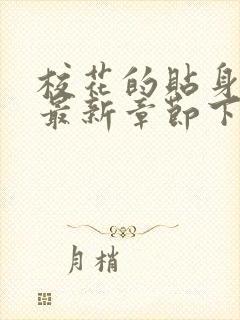 校花的贴身
最新章节下
月梢